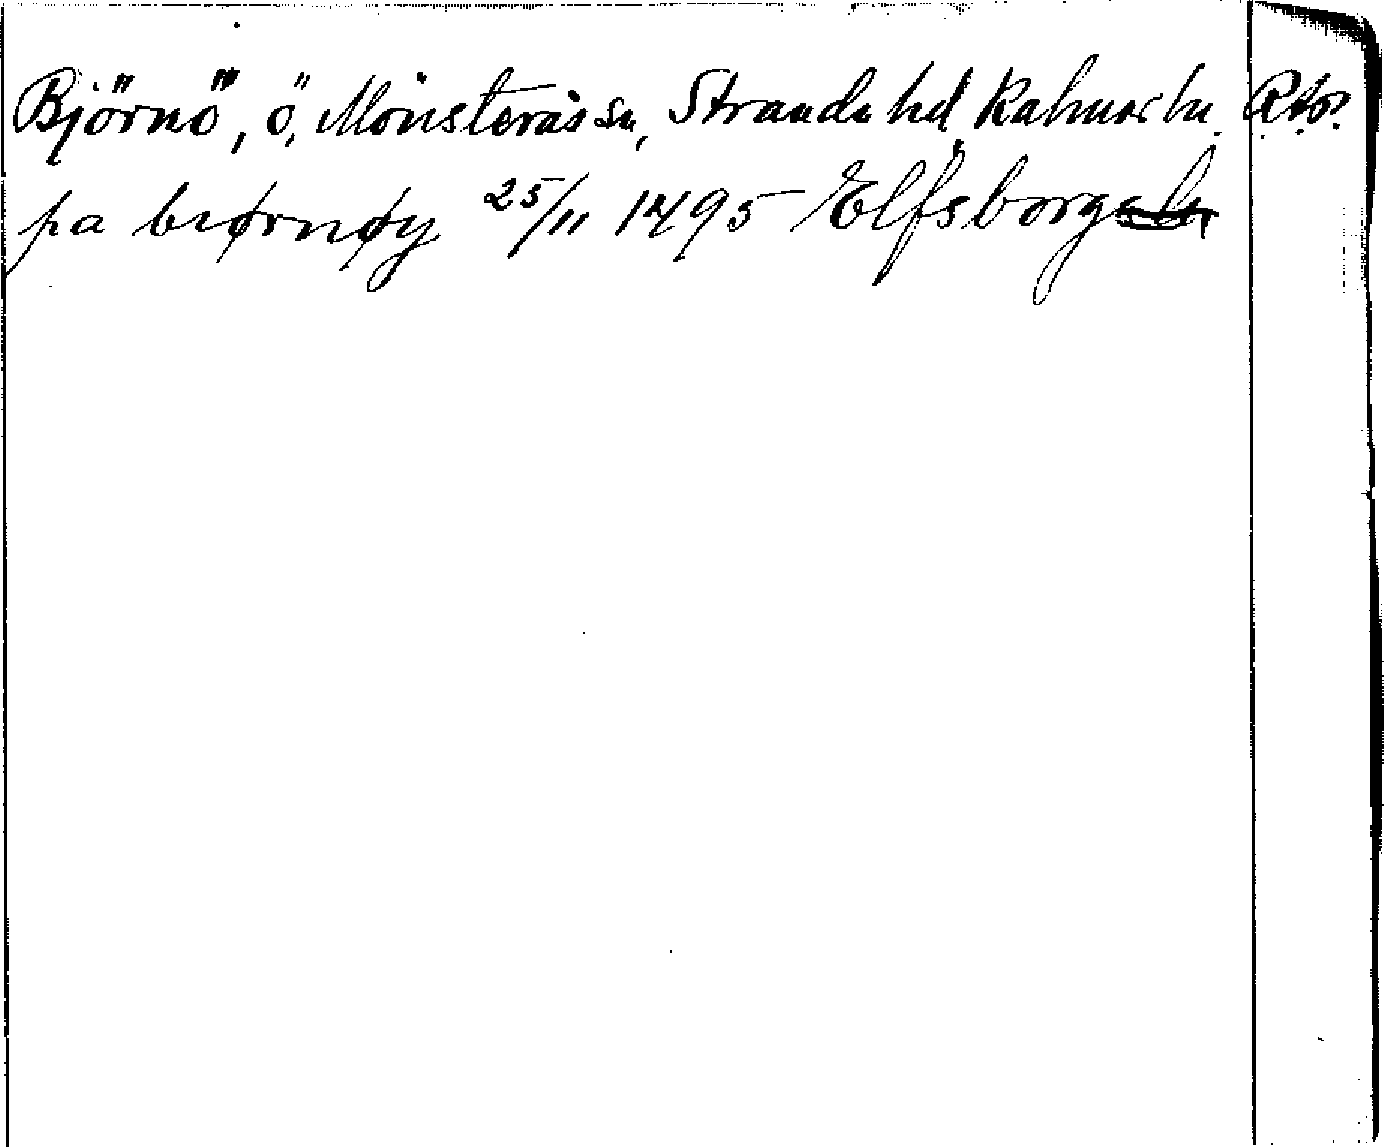 Björnö, ö, Mönsterås sn, Stranda hd, Kalmar ln. R.t.o.
pa biørnøy 25/11 1495 Elfsborg